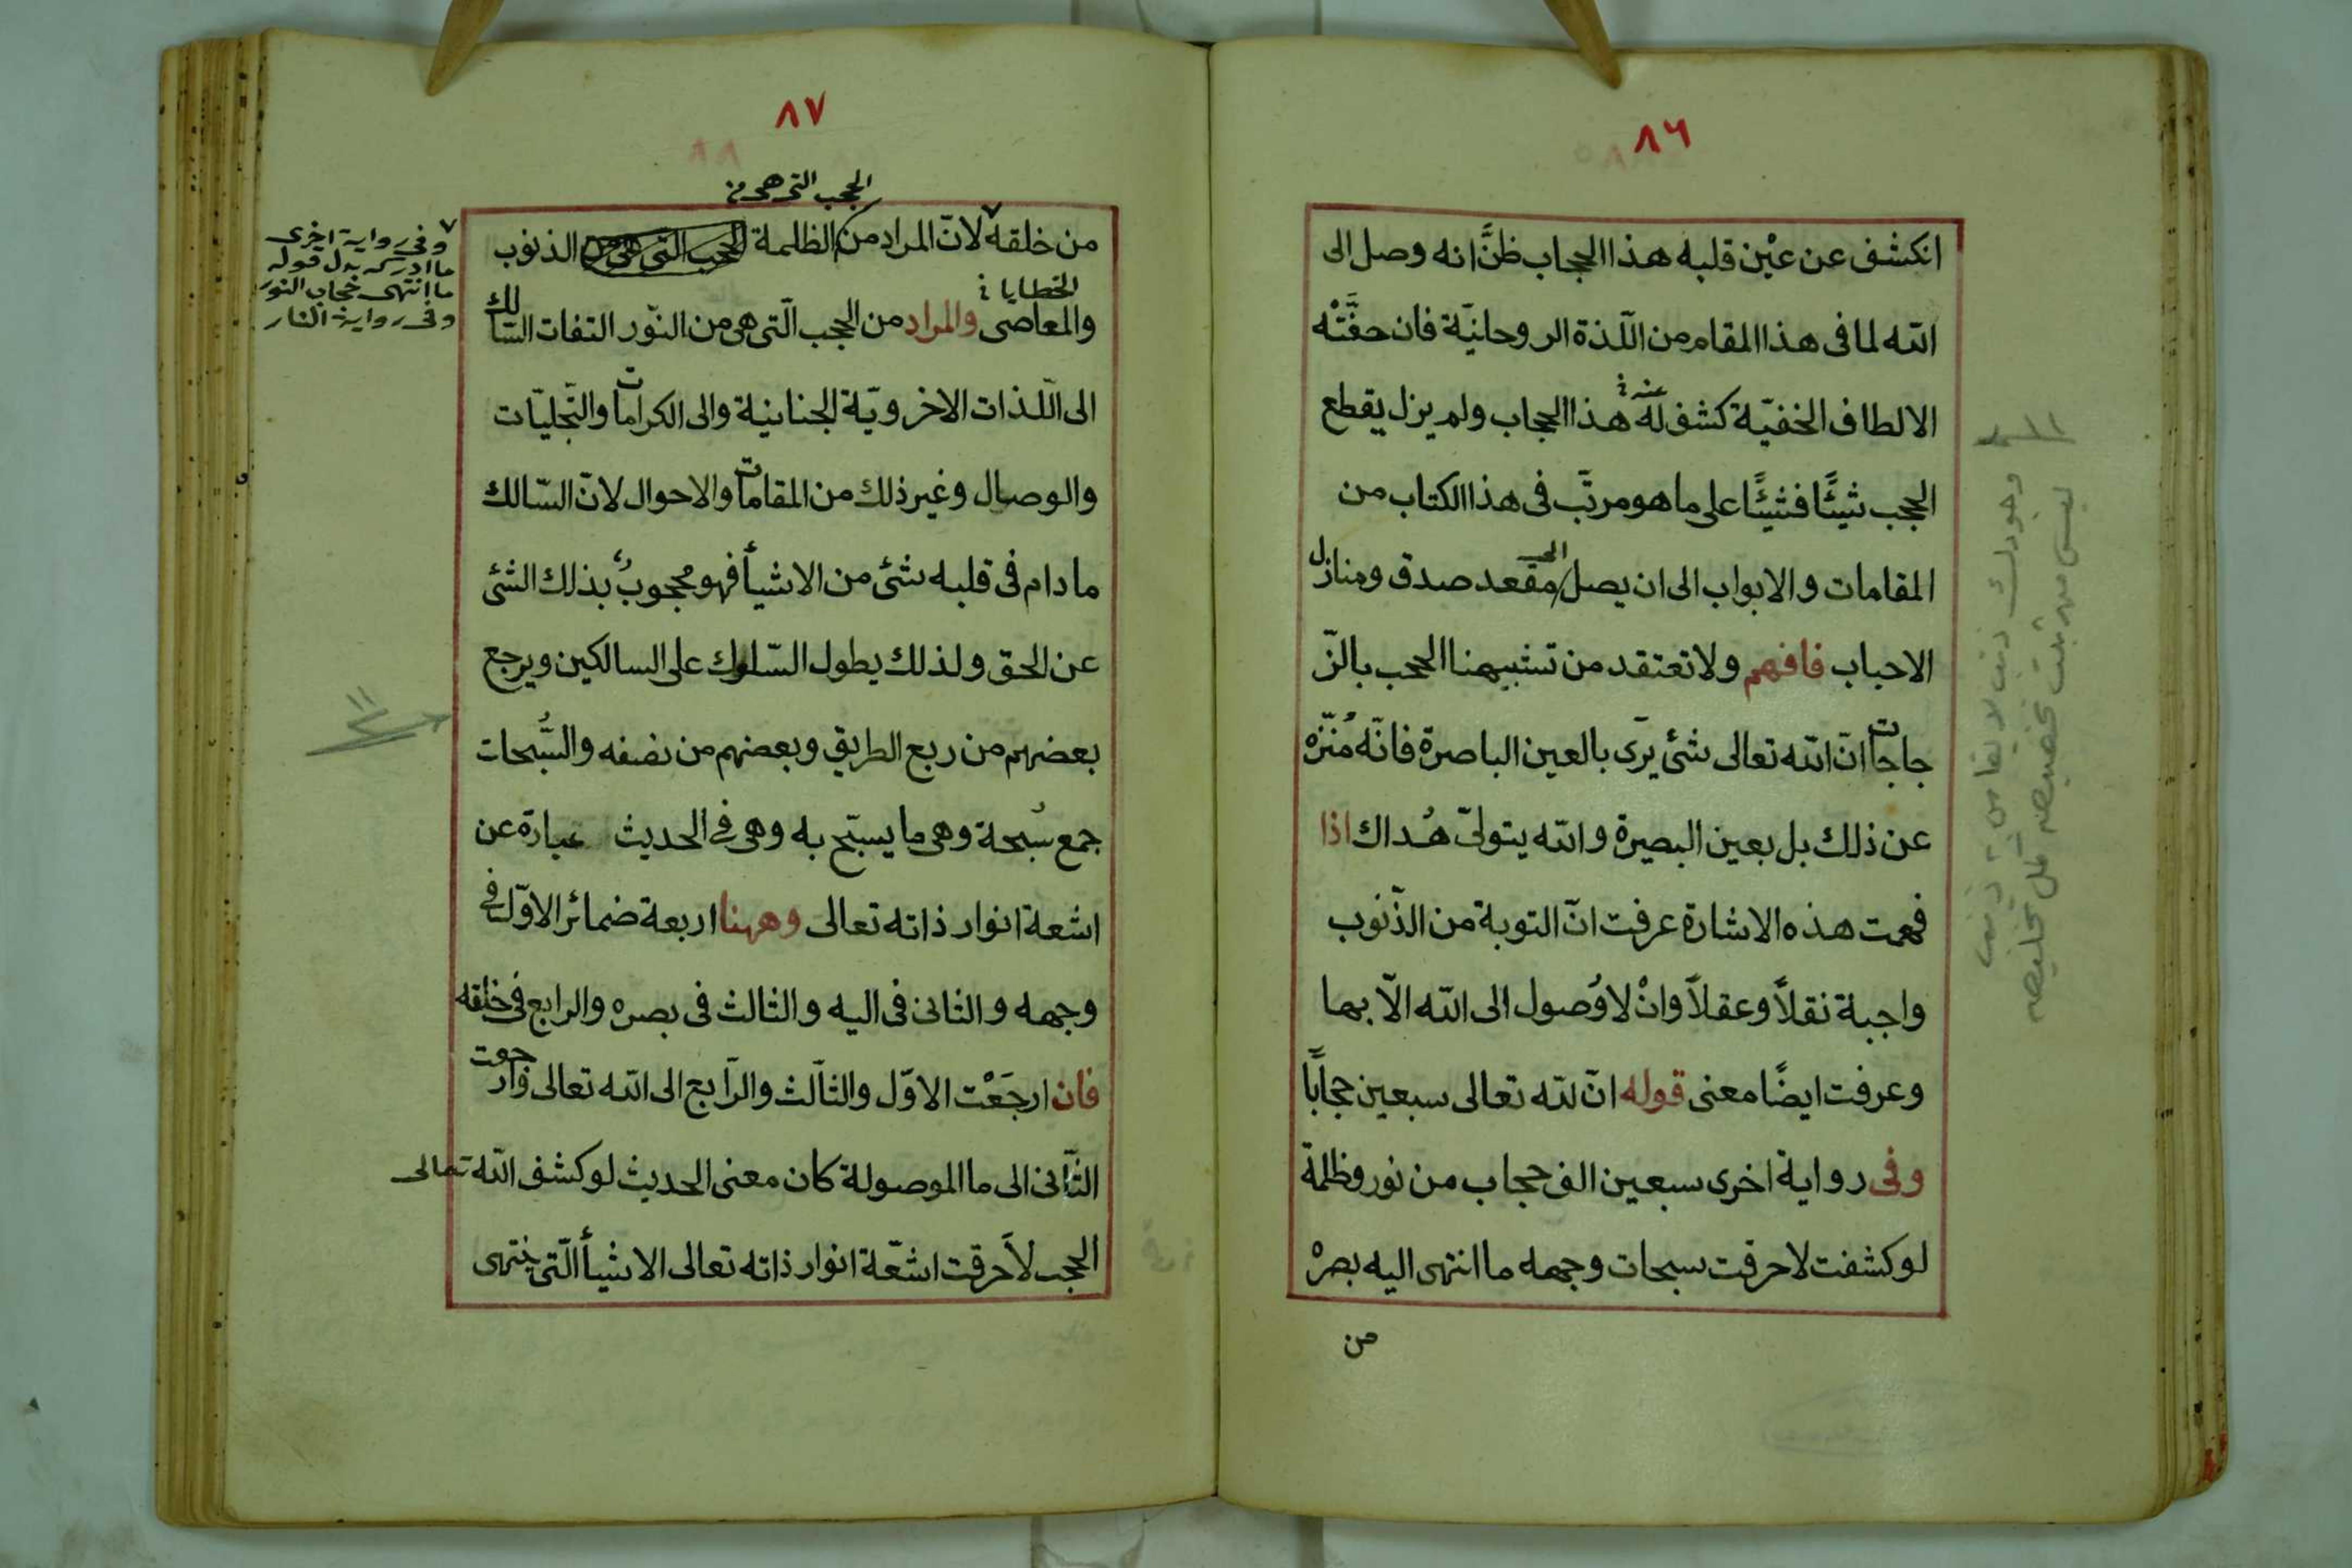 ٨٦
انكشف عن عيْن قلبه هذا الحجاب ظنَّ انه وصل الى
الله لما فى هذا المقام من اللّذة الروحانيّة فان حفَّتْه
الالطاف الخفيّة كشف له عنه هذا الحجاب ولم يزل يقطع
الحجب شيئًا فشيئًا على ما هو مرتّب فى هذا الكتاب من
المقامات والابواب الى ان يصل الى مقعد صدق ومنازل
الاحباب فافهم ولا تعتقد من تشبيهنا الحجب بالزّ
جاجات انّ الله تعالى شئ يرَى بالعين الباصرة فانّه مُنزّه
عن ذلك بل بعين البصيرة والله يتولىّ هُداك اذا
فهمت هذه الاشارة عرفت انّ التوبة من الذّنوب
واجبة نقلاً وعقلاً وانْ لا وُصول الى الله الاّ بها
وعرفت ايضًا معنى قوله انّ لله تعالى سبعين حجابًا
وفى رواية اخرى سبعين الف حجاب من نور وظلمة
لو كشفت لاحرقت سبحات وجهه ما انتهى اليه بصره
من
٨٧
الحجب التى هى من
من خلقه لانّ المراد من الظلمة الحجب التى هى من الذنوب
الخطايا
والمعاصى والمراد من الحجب الّتى هى من النّور التفات السّالك
الى اللّذات الاخرويّة الجنانية والى الكرامات والتّجليّات
والوصال وغير ذلك من المقامات والاحوال لانّ السّالك
ما دام فى قلبه شئ من الاشيأ فهو محجوبٌ بذلك الشئ
عن الحق ولذلك يطول السّلوك على السالكين ويرجع
بعضهم من ربع الطريق وبعضهم من نصفه والسُّبحات
جمع سُبحة وهى ما يسبّح به وهى فى الحديث عبارة عن
اشعة انوار ذاته تعالى وههنا اربعة ضمائر الاوّل فى
وجهه والثانى فى اليه والثالث فى بصره والرابع فى خلقه
فان ارجَعْت الاوّل والثالث والرّابع الى الله تعالى وارجعت
الثّانى الى ما الموصولة كان معنى الحديث لو كشف الله تعالى
الحجب لاَحرقت اشعّة انوار ذاته تعالى الاشيأ الّتى ينتهى
وفى رواية اخرى
ما ادركه بدل قوله
ما انتهى حجاب النور
وفى رواية النار